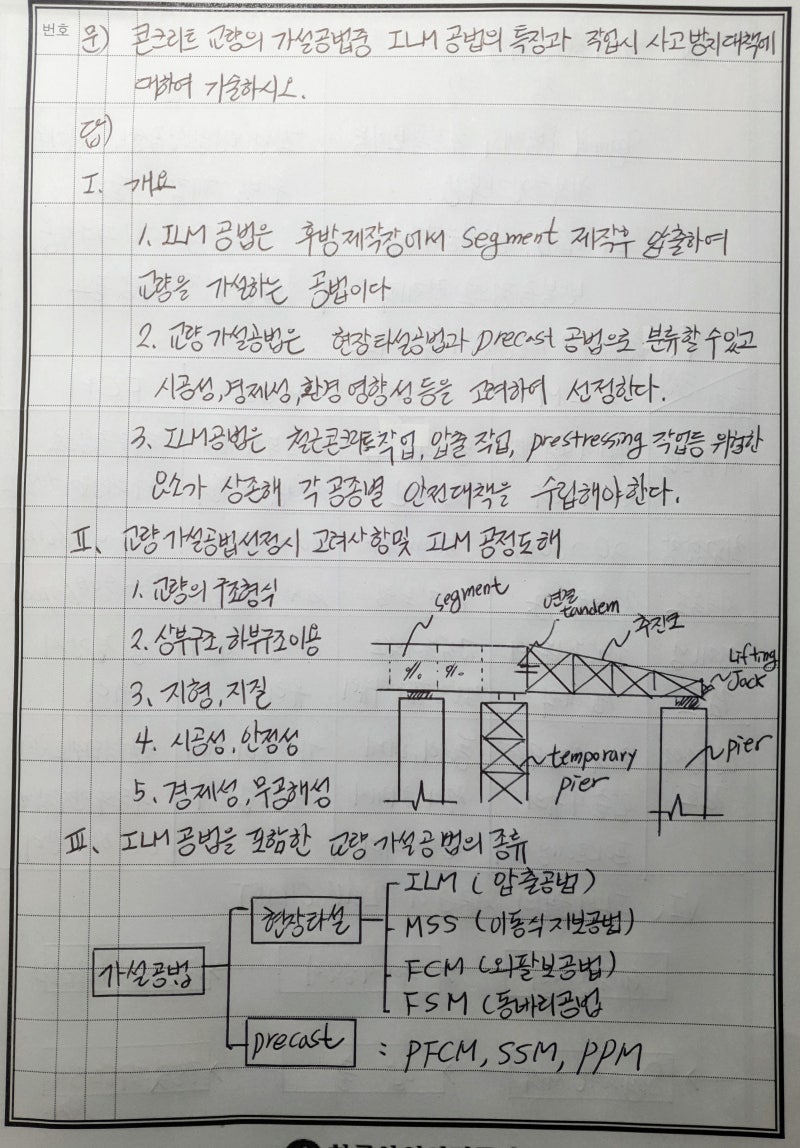 번호
문) 콘크리트 교량의 가설공법중 ILM 공법의 특징과 작업시 사고방지대책에
대하여 기술하시오.
답)
I. 개요
1. ILM 공법은 후방제작장에서 segment 제작후 압출하여
교량을 가설하는 공법이다
2. 교량가설공법은 현장타설공법과 precast 공법으로 분류할 수 있고
시공성, 경제성, 환경영향성 등을 고려하여 선정한다.
3. ILM공법은 철근콘크리트작업, 압출작업, prestressing 작업등 위험한
요소가 상존해 각 공종별 안전대책을 수립해야한다.
II. 교량가설공법선정시 고려사항및 ILM 공정도해
1. 교량의 구조형식
2. 상부구조, 하부구조이용
3. 지형, 지질
4. 시공성, 안정성
5. 경제성, 무공해성
segment
연결
tandem
추진코
Lifting
Jack
temporary
pier
pier
III. ILM 공법을 포함한 교량가설공법의 종류
가설공법
현장타설
ILM (압출공법)
MSS (이동식지보공법)
FCM (외팔보공법)
FSM (동바리공법
precast : PFCM, SSM, PPM